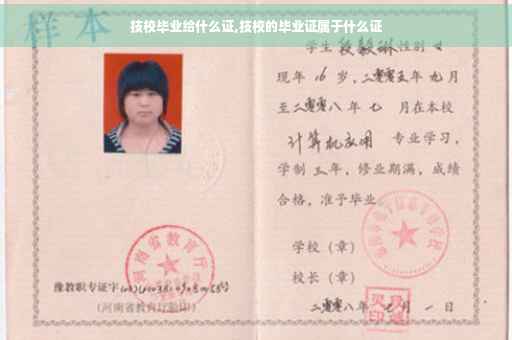 技校毕业给什么证,技校的毕业证属于什么证
样本
学生 段毅琳 性别 女
现年 16 岁,二零零五年 九 月
至二零零八年 七 月在本校
计算机应用 专业学习,
学制 三 年,修业期满,成绩
合格,准予毕业
学校(章)
校长(章)
二零零八年 七 月 一 日
河南省教育厅
豫教职专证字
(河南省教育厅验印)